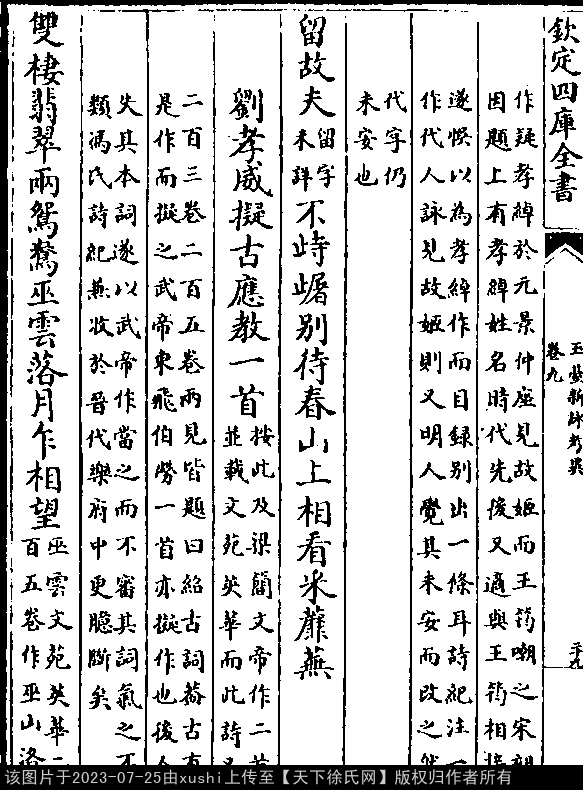 欽定四庫全書
玉臺新詠考異
卷九
作疑孝綽於元景仲座見故姬而王筠嘲之宋刻
因題上有孝綽姓名時代先後又適與王筠相接
遂悞以為孝綽作而目録别出一條耳詩紀注一
作代人詠見故姬則又明人覺其未安而改之然
代字仍
未安也
留故夫留字未詳不峙𡾊别待春山上相看采蘼蕪
劉孝威擬古應教一首按此及梁簡文帝作二首
並載文苑英華而此詩又
二百三卷二百五卷兩見皆題曰紹古詞葢古有
是作而擬之武帝東飛伯勞一首亦擬作也後人
失其本詞遂以武帝作當之而不審其詞氣之不
類馮氏詩紀兼收於晉代樂府中更臆斷矣
雙棲翡翠兩鴛鴦巫雲落月乍相望巫雲文苑英華二
百五卷作巫山洛
该图片于2023-07-25由xushi上传至【天下徐氏网】版权归作者所有